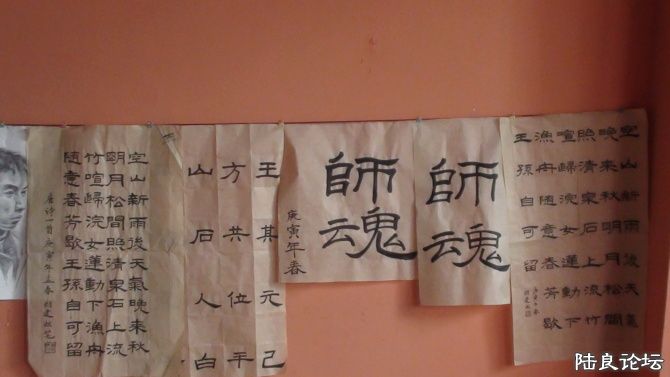 空山新雨後天氣晚来秋
明月松間照清泉石上流
竹喧歸浣女蓮動下漁舟
随意春芳歇王孫自可留
唐诗一首庚寅年
王其元己
方共位平
山石人白
師魂
庚寅年春
師魂
空山新雨後天氣
晚来秋明月松間
照清泉石上流竹
喧歸浣女蓮動下
漁舟随意春芳歇
王孫自可留
陆良论坛